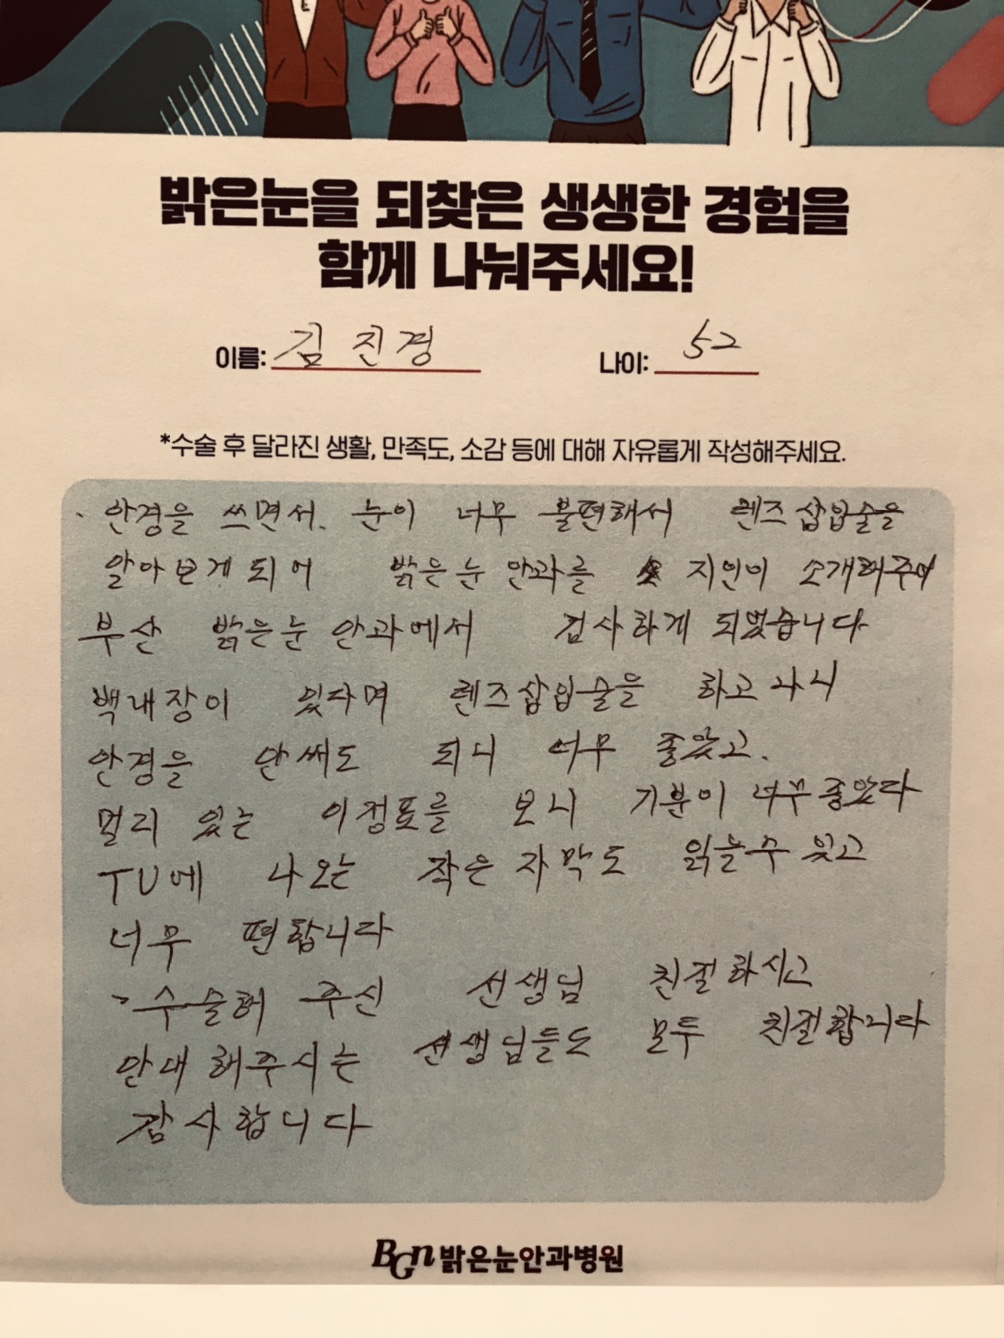 밝은눈을 되찾은 생생한 경험을
함께 나눠주세요!
이름: 김진경 나이: 52
*수술 후 달라진 생활, 만족도, 소감 등에 대해 자유롭게 작성해주세요.
· 안경을 쓰면서. 눈이 너무 불편해서 렌즈삽입술을
알아보게 되어 밝은눈 안과를 지인이 소개해주어
부산 밝은눈 안과에서 검사하게 되었습니다
백내장이 있다며 렌즈삽입술을 하고 나니
안경을 안써도 되니 너무 좋았고.
멀리 있는 이정표를 보니 기분이 너무 좋았다
TV에 나오는 작은 자막도 읽을수 있고
너무 편합니다
· 수술해 주신 선생님 친절하시고
안내 해주시는 선생님들도 모두 친절합니다
감사합니다
BGN 밝은눈안과병원